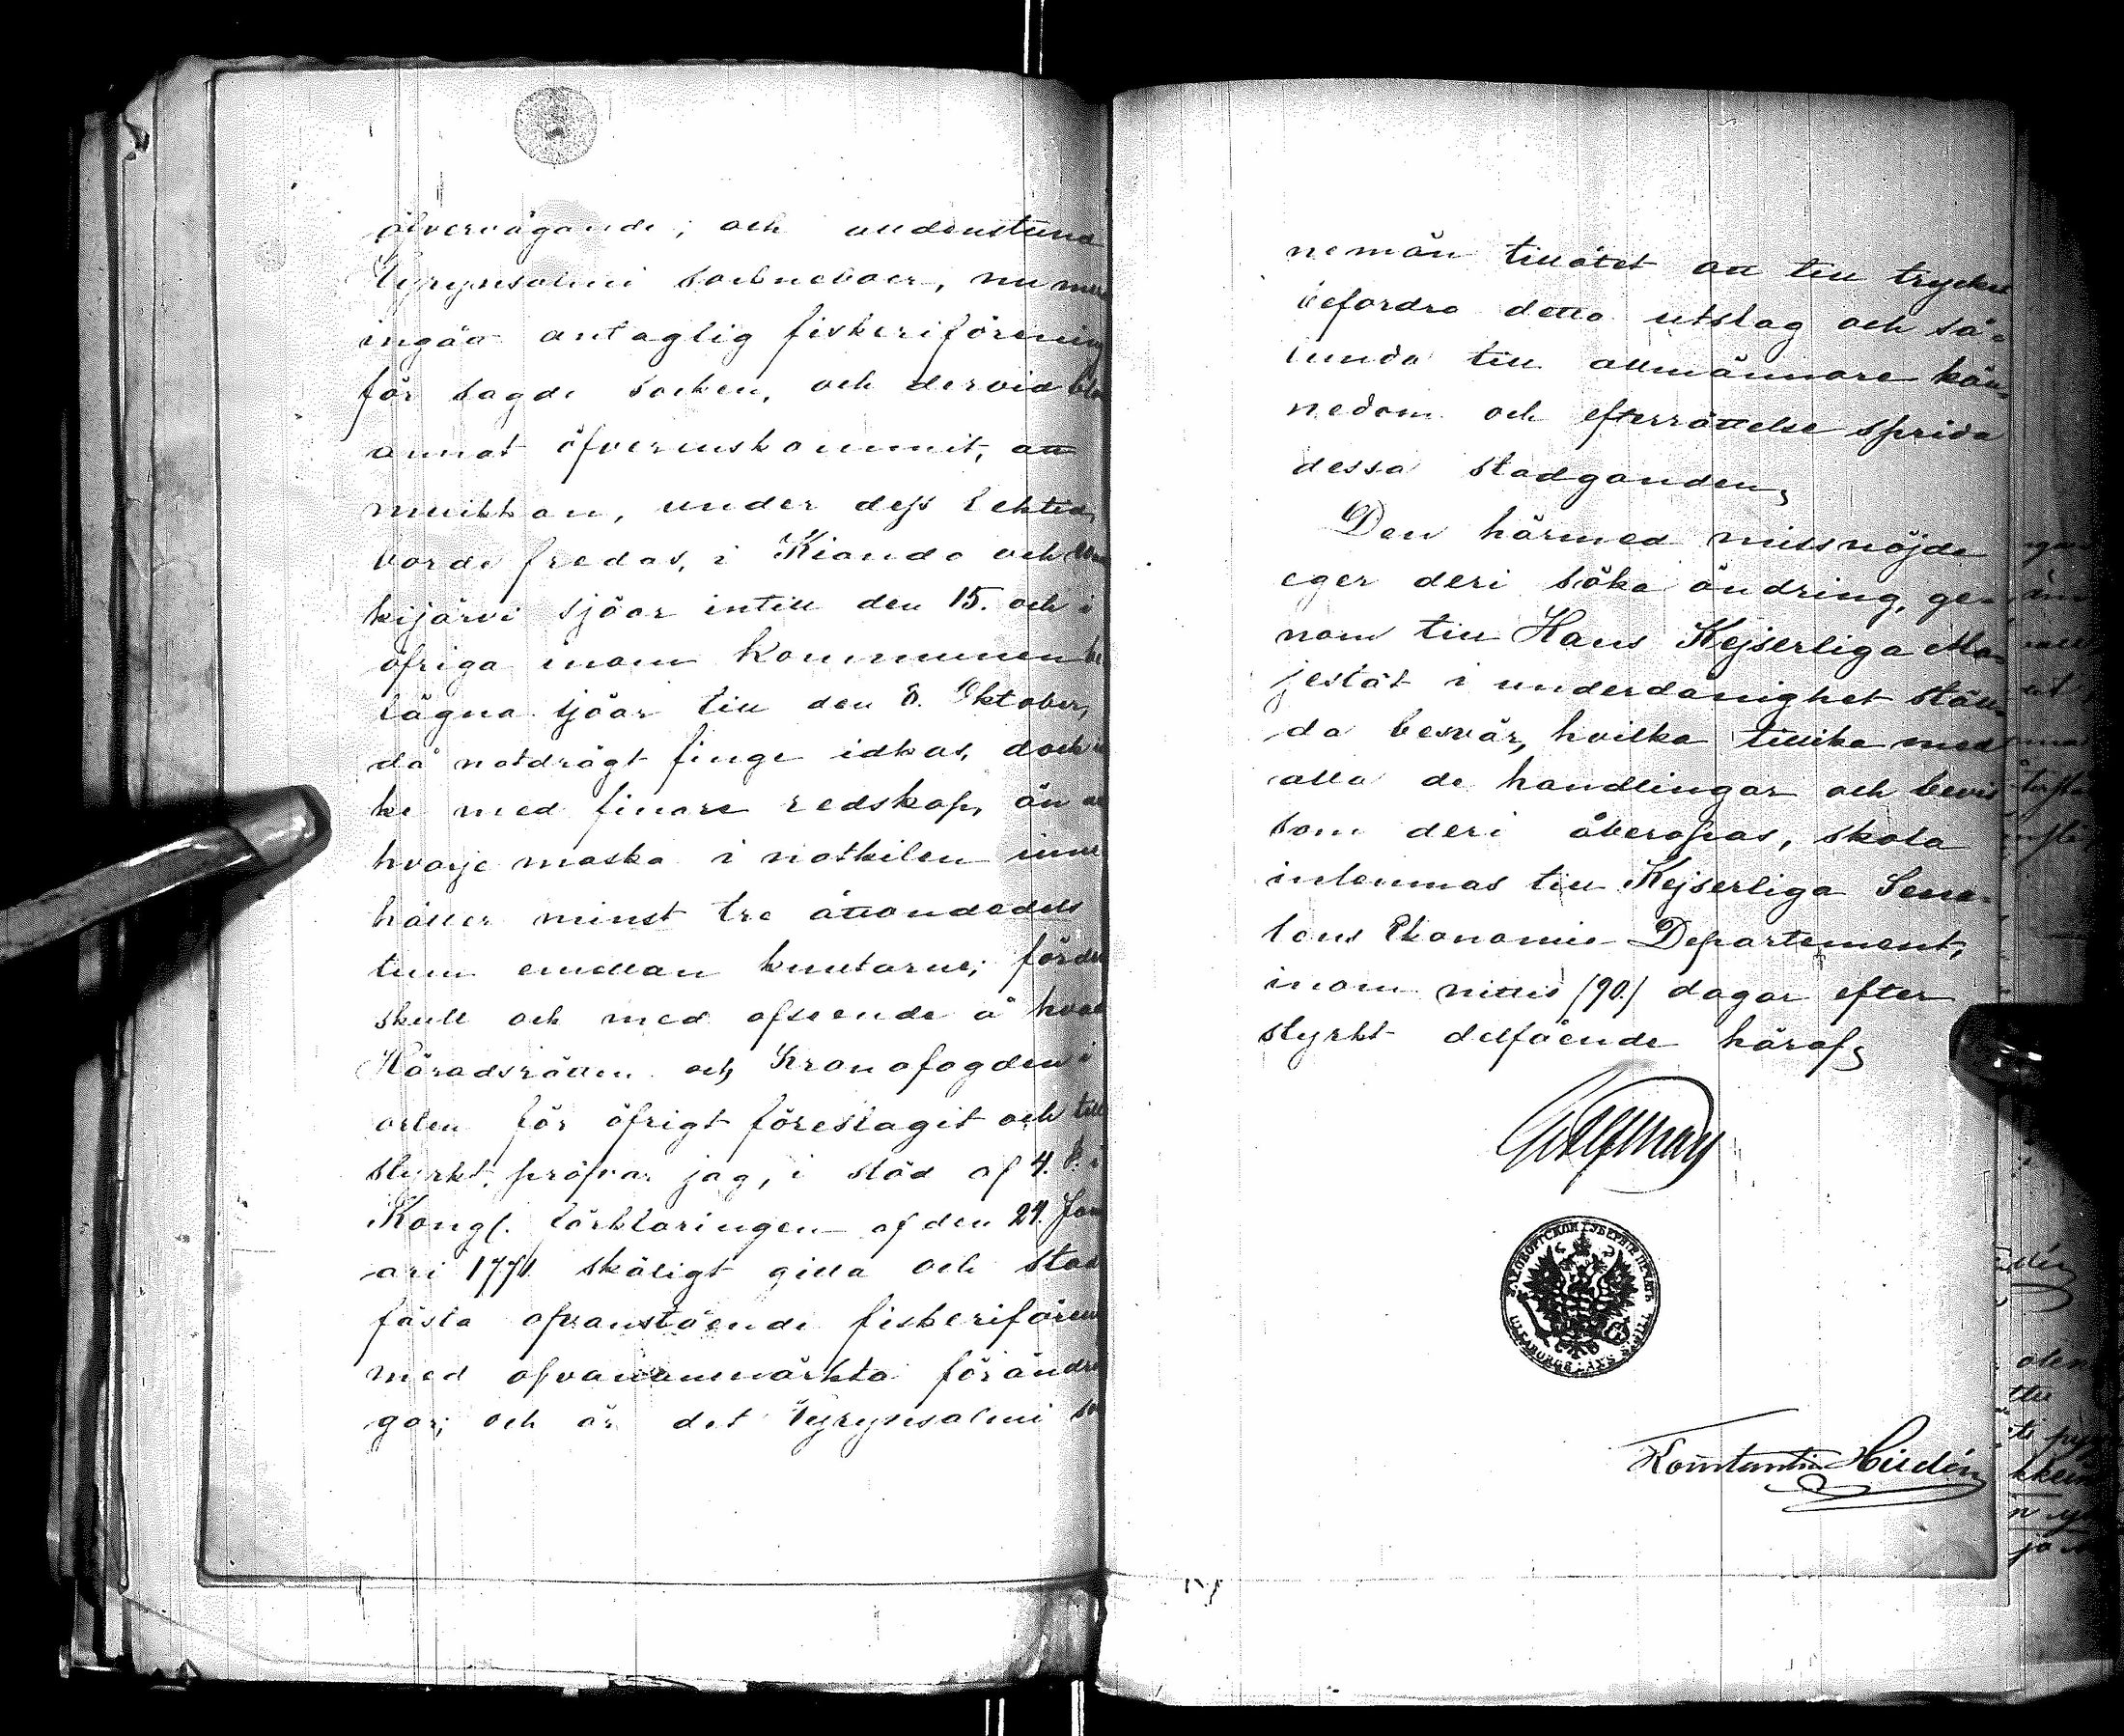 öfvervägande; och endenstund
Hyrynsalmi sockneboer, nu mera
ingått antaglig fiskeriförening
för sagde socken, och dervid bland
annat öfverenskommit, att
muikkan, under dess lektid,
borde fredas, i Kianda och
kijärvi sjöar intill den 15. och i
öfriga inom kommunen be
lägna sjöar till den 8. Oktober,
då notdrägt finge idkas, dock ic
ke med finare redskap, än att
hvarje maska i notkilen inne
håller minst tre åttondedels
tum emellan knutarne; för den
skull och med afseende å hvad
Häradsrätten och Kronofogden i
orten för öfrigt föreslagit och till
styrkt, pröfvar jag, i stöd af 4. P. i
Kongl. förklaringen af den 24. Janu
ari 1771 skäligt gilla och stad
fästa ofvanstående fiskeriförening
med ofvananmärkta förändrin
gar; och är det Hyrynsalmi sock
nemän tillåtet att till trycket
befordra detta utslag och så-
lunda till allmännare kän-
nedom och efterrättelse sprida
dessa stadganden,
Den härmed missnöjde
eger deri söka ändring, ge-
nom till Hans Kejserliga Ma-
jestät i underdånighet stäl-
da besvär, hvilka tillika med
alla de handlingar och bevis
som deri åberopas, skola
inlemnas till Kejserliga Sena-
tens Ekonomie Departement,
inom nittio /90./ dagar efter
styrkt delfående häraf,
УЛЕОБОРГСКОЙ ГУБЕРНІИ ПЕЧАТЬ
ULEÅBORGS LÄNS SIGILL
Konstantin Hildén